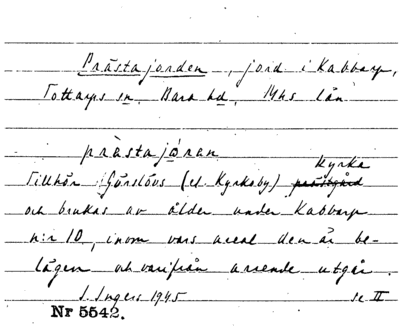 Prästajorden, jord i Kabbarp,
Tottarps sn, Bara hd, Mhs län
präjstajoran
kyrka
Tillhör Görslövs (el. Kyrkoby) prästgård
och brukas av ålder under Kabbarp
n:r 10, inom vars areal den är be-
lägen och varifrån arrende utgår.
I. Ingers 1945 se II
Nr 5542.